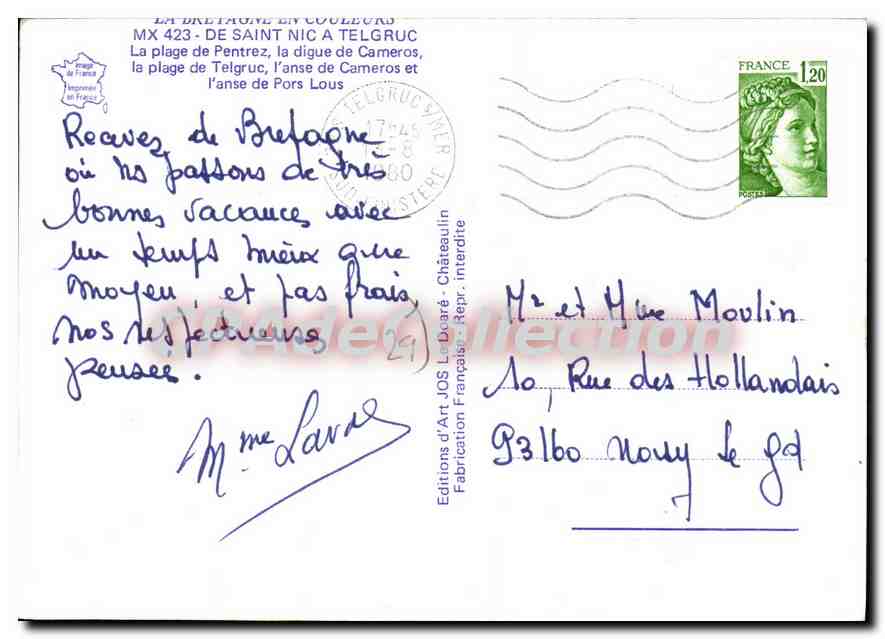 LA BRETAGNE EN COULEURS
MX 423 - DE SAINT NIC A TELGRUC
La plage de Pentrez, la digue de Cameros,
la plage de Telgruc, l'anse de Cameros et
l'anse de Pors Lous
Image
de France
Imprimée
en France
TELGRUC S/MER
17H45
-8
1980
FINISTERE
FRANCE 1,20
POSTES
de Bretagne
où ns passons de très
bonnes vacances avec
un temps mieux que
moyen, et pas frais,
nos respectueuses
pensées.
Mme
29
Editions d'Art JOS Le Doaré - Châteaulin
Fabrication Française - Repr. interdite
CPAdeCollection
Mr et Mme Moulin
10, Rue des Hollandais
93160 Noisy le Gd